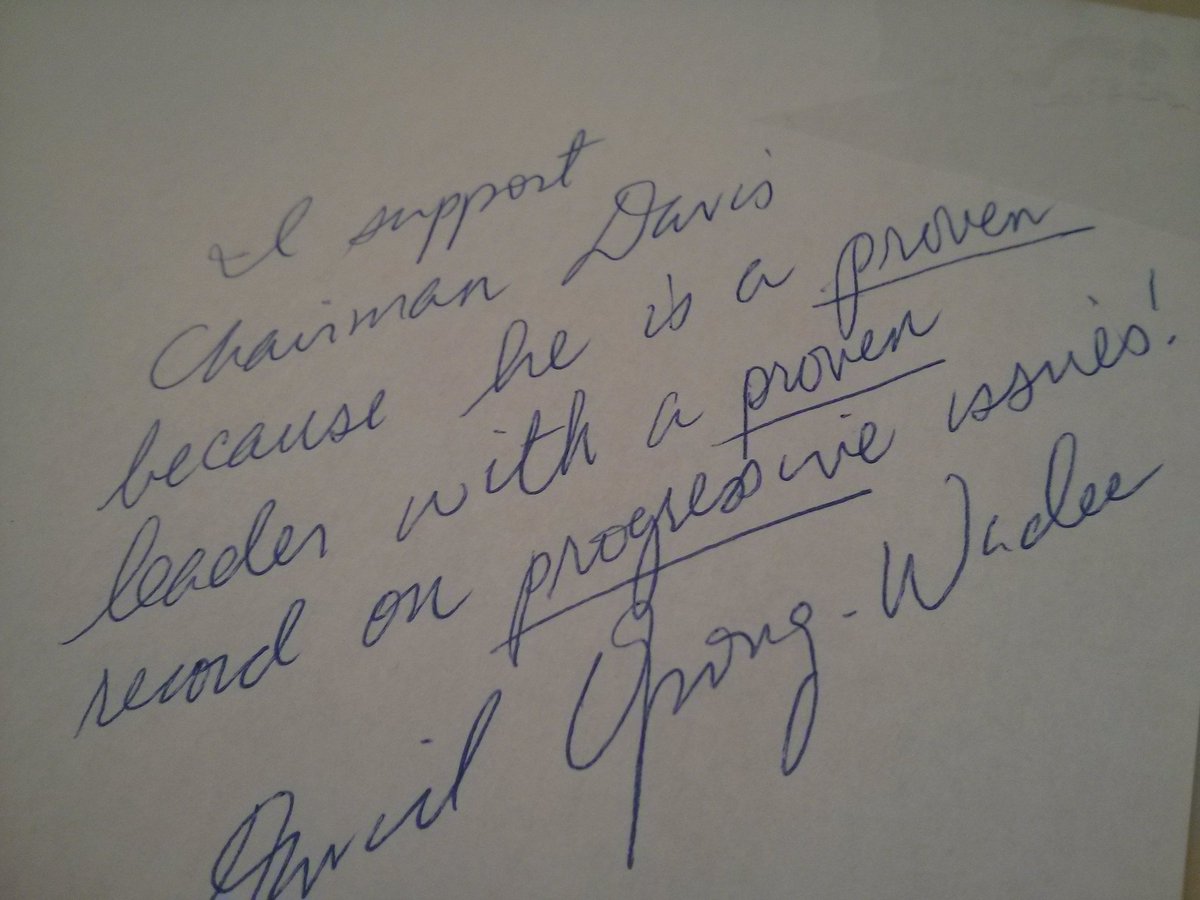 I support
Chairman Davis
because he is a proven
leader with a proven
record on progressive issues!
Opong-Wadee